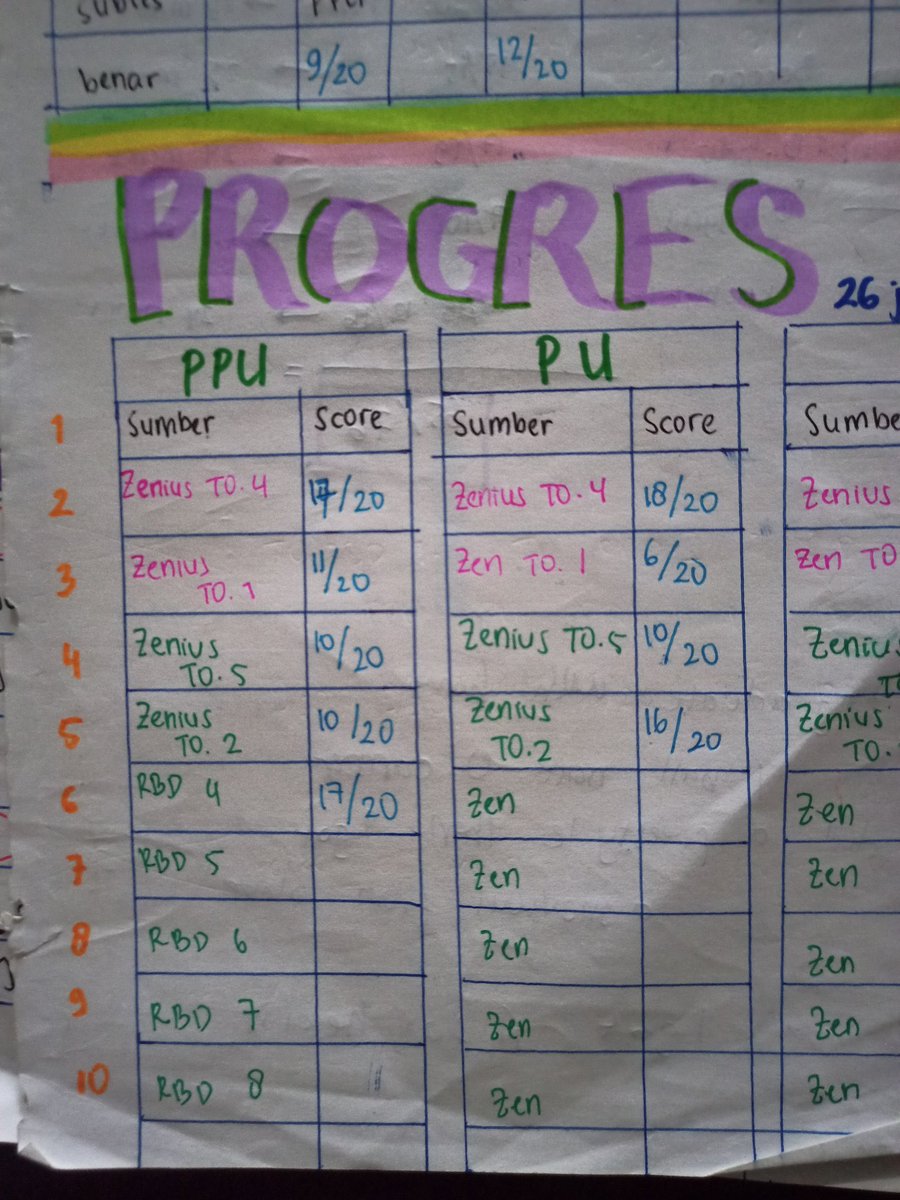 benar 9/20 12/20
PROGRES
26 j
PPU PU
1 Sumber Score Sumber Score Sumbe
2 Zenius TO.4 17/20 Zenius TO.4 18/20 Zenius
3 Zenius TO.1 11/20 Zen TO.1 6/20 Zen TO
4 Zenius TO.5 10/20 Zenius TO.5 10/20 Zenius
5 Zenius TO.2 10/20 Zenius TO.2 16/20 Zenius TO.
6 RBD 4 17/20 Zen Zen
7 RBD 5 Zen Zen
8 RBD 6 Zen Zen
9 RBD 7 Zen Zen
10 RBD 8 Zen Zen